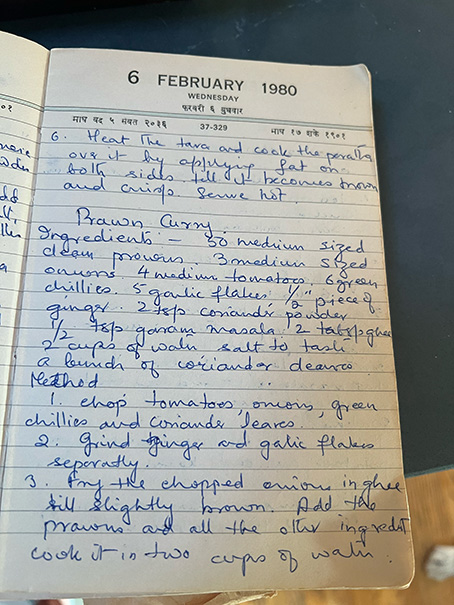 6 FEBRUARY 1980
WEDNESDAY
फरवरी ६ बुधवार
माघ वद ५ संवत २०३६ 37-329 माघ १७ शके १९०१
6. Heat the tava and cook the paratha
over it by applying fat on
both sides till it becomes brown
and crisp. Serve hot.
Prawn Curry
Ingredients :- 30 medium sized
clean prawns. 3 medium sized
onions. 4 medium tomatoes. 6 green
chillies. 5 garlic flakes. 1/2" piece of
ginger. 2 tsp coriander powder
1/2 tsp garam masala. 2 tabsp ghee
2 cups of water salt to taste
a bunch of coriander leaves.
Method
1. Chop tomatoes, onions, green
chillies and coriander leaves.
2. Grind ginger and galic flakes
separatly.
3. Fry the chopped onions in ghee
till slightly brown. Add the
prawns and all the other ingredt
cook it in two cups of water.